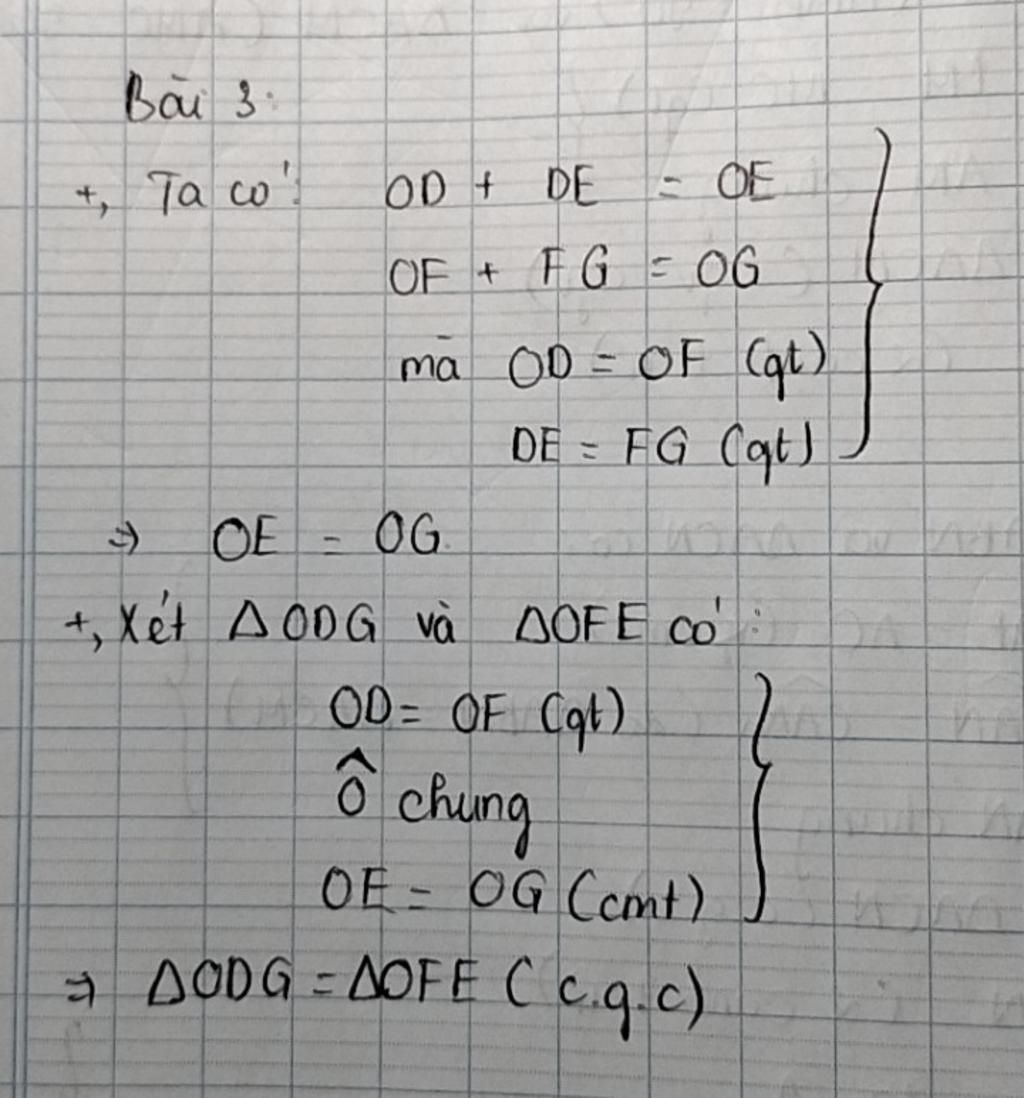 Bài 3:
+, Ta có: OD + DE = OE
OF + FG = OG
mà OD = OF (gt)
DE = FG (gt)
⇒ OE = OG.
+, Xét ΔODG và ΔOFE có:
OD = OF (gt)
Ô chung
OE = OG (cmt)
⇒ ΔODG = ΔOFE (c.g.c)